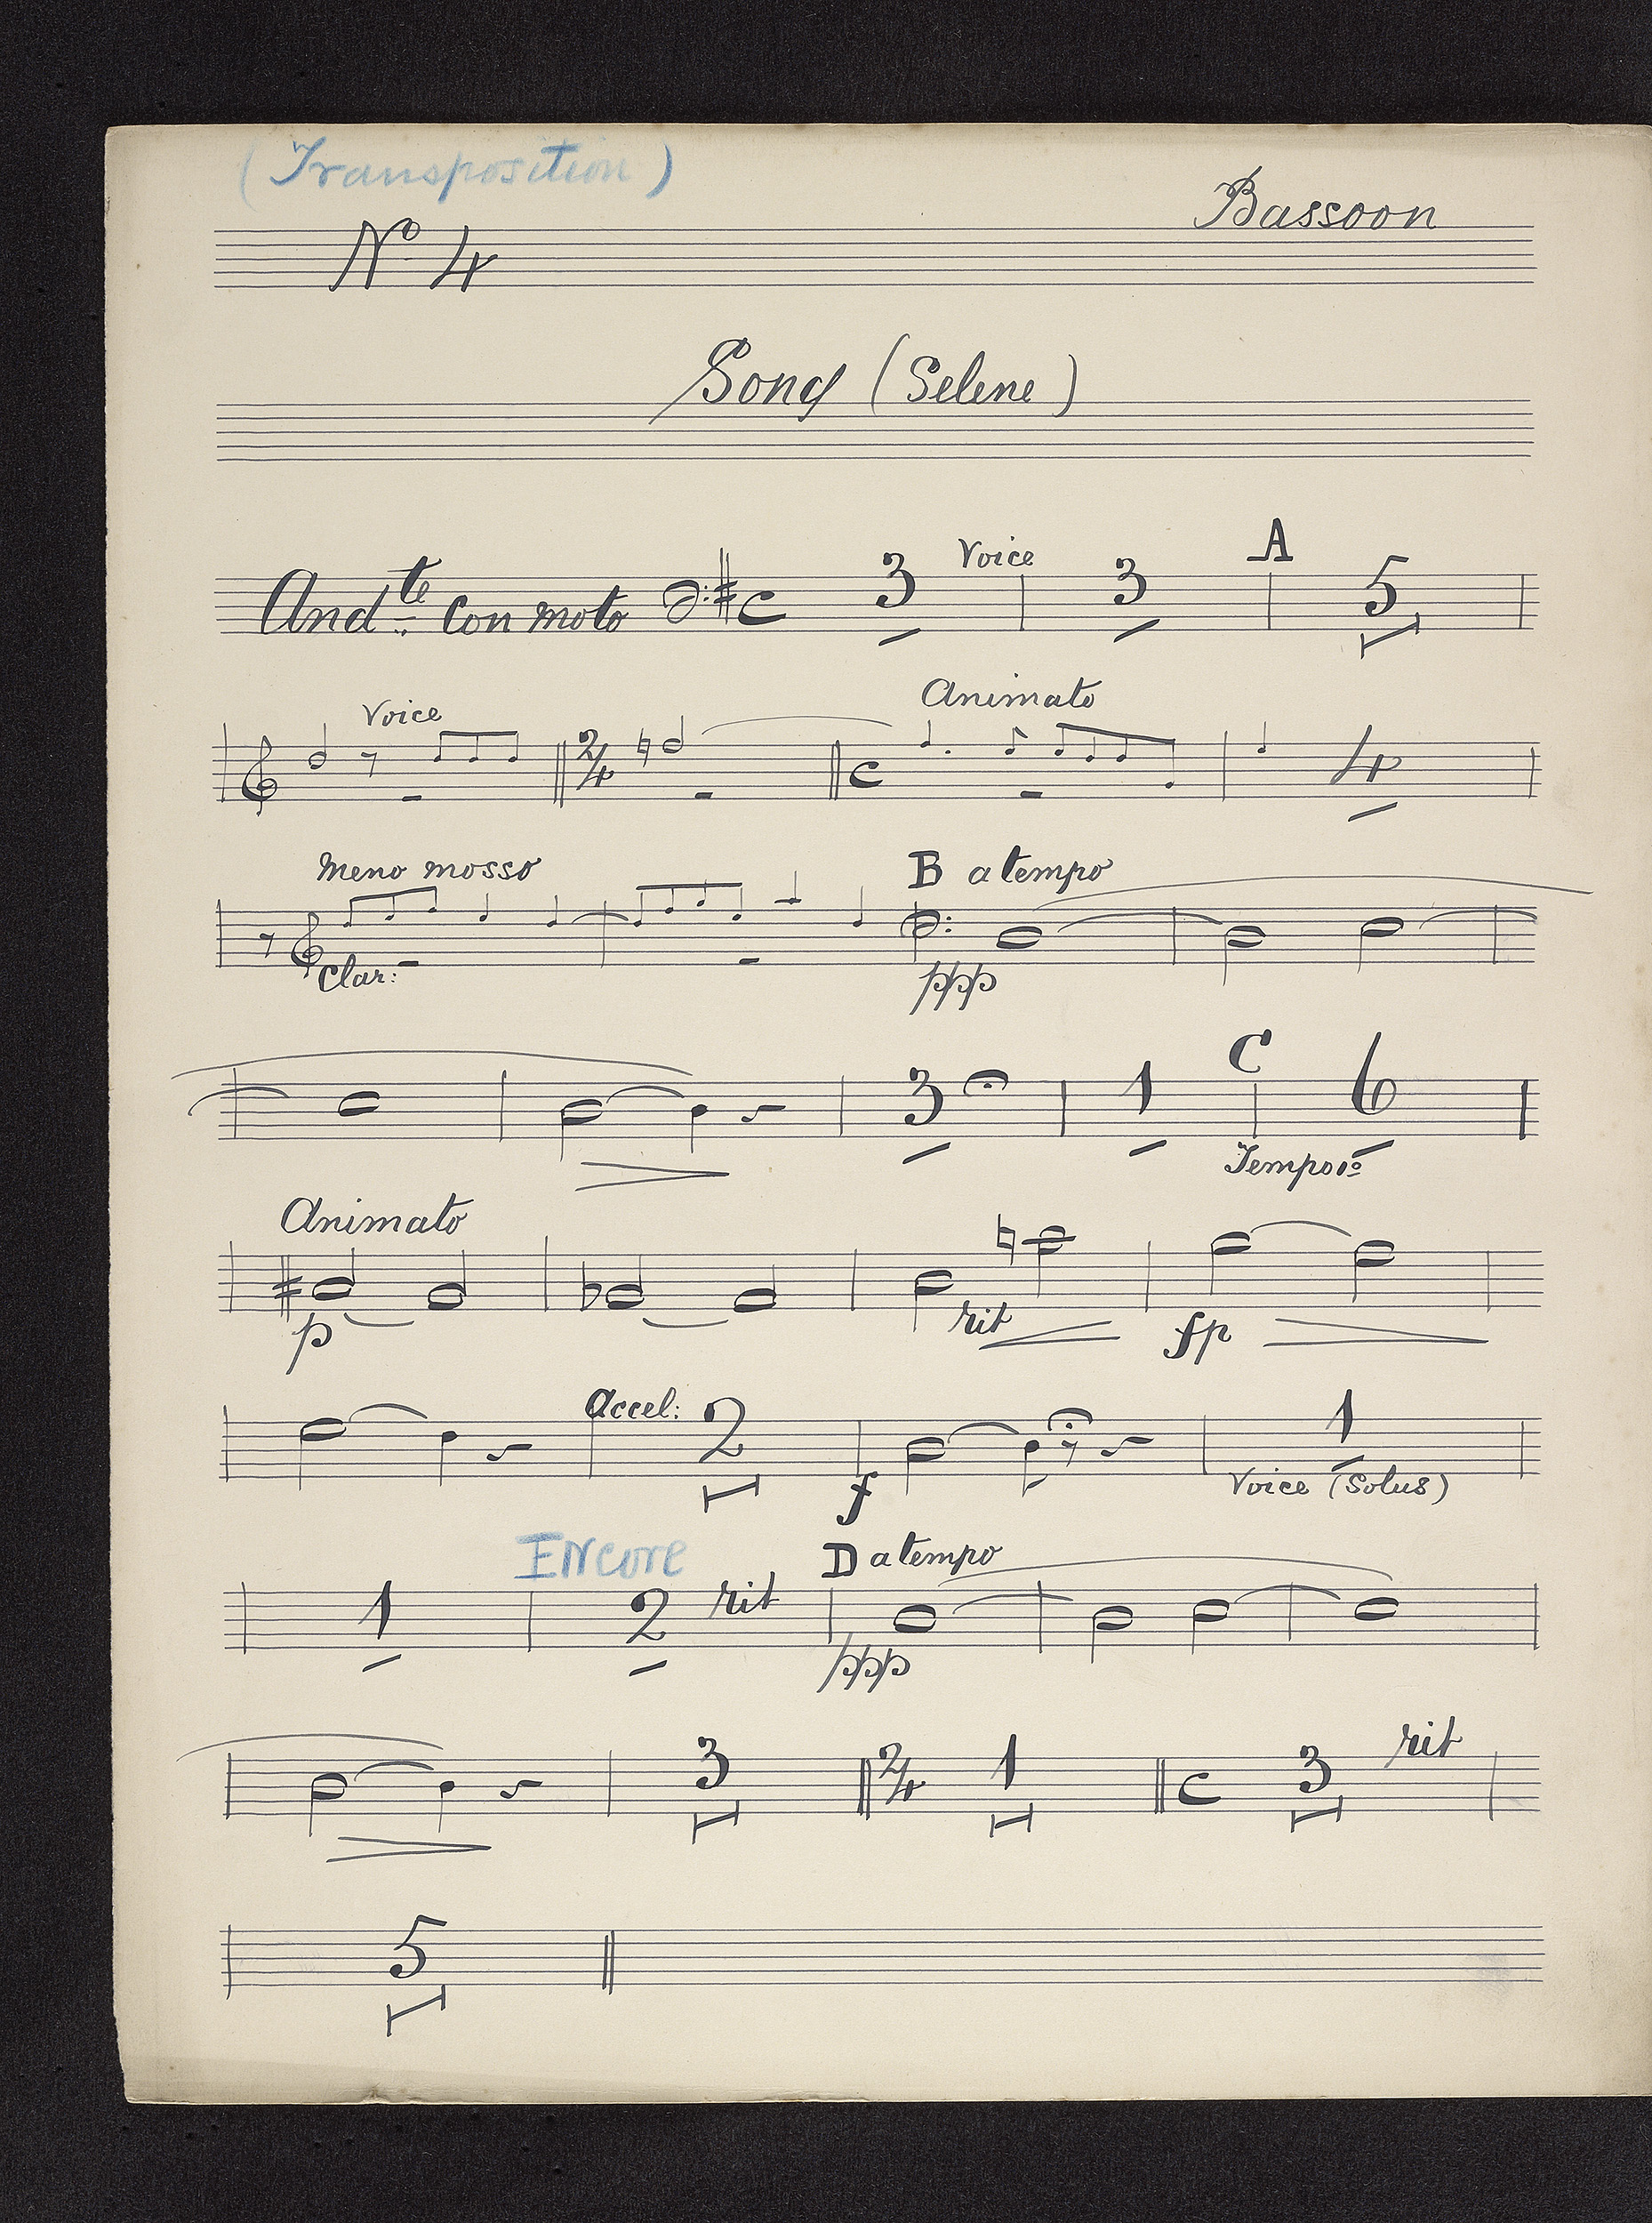 (Transposition)
Bassoon
No 4
Song (Selene)
Voice
A
Andte Con moto C 3 3 5
Voice
Animato
2/4 C 4
Meno mosso
B a tempo
Clar:
ppp
C
3 1 6
Tempo 1o
Animato
p
rit
fp
Accel: 2
1
f
Voice (Solus)
Encore
D a tempo
1 2 rit
ppp
3 2/4 1 C 3 rit
5